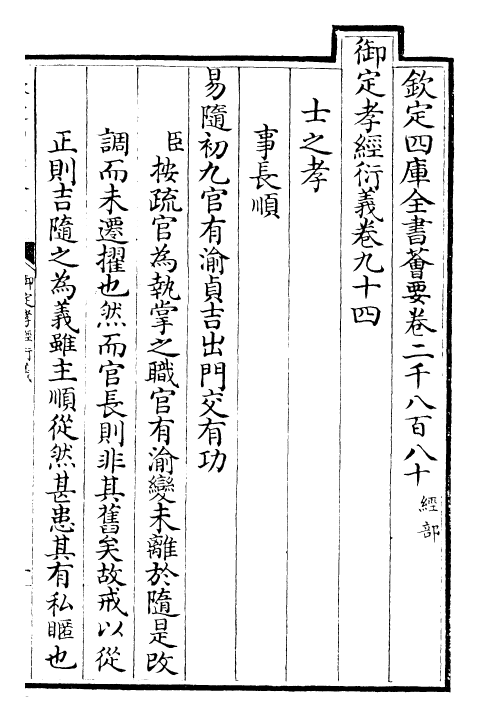 欽定四庫全書薈要卷二千八百八十 經部
御定孝經衍義卷九十四
士之孝
事長順
易隨初九官有渝貞吉出門交有功
臣按疏官為執掌之職官有渝變未離於隨是改
調而未遷擢也然而官長則非其舊矣故戒以從
正則吉隨之為義雖主順從然甚患其有私暱也
御定孝經衍義